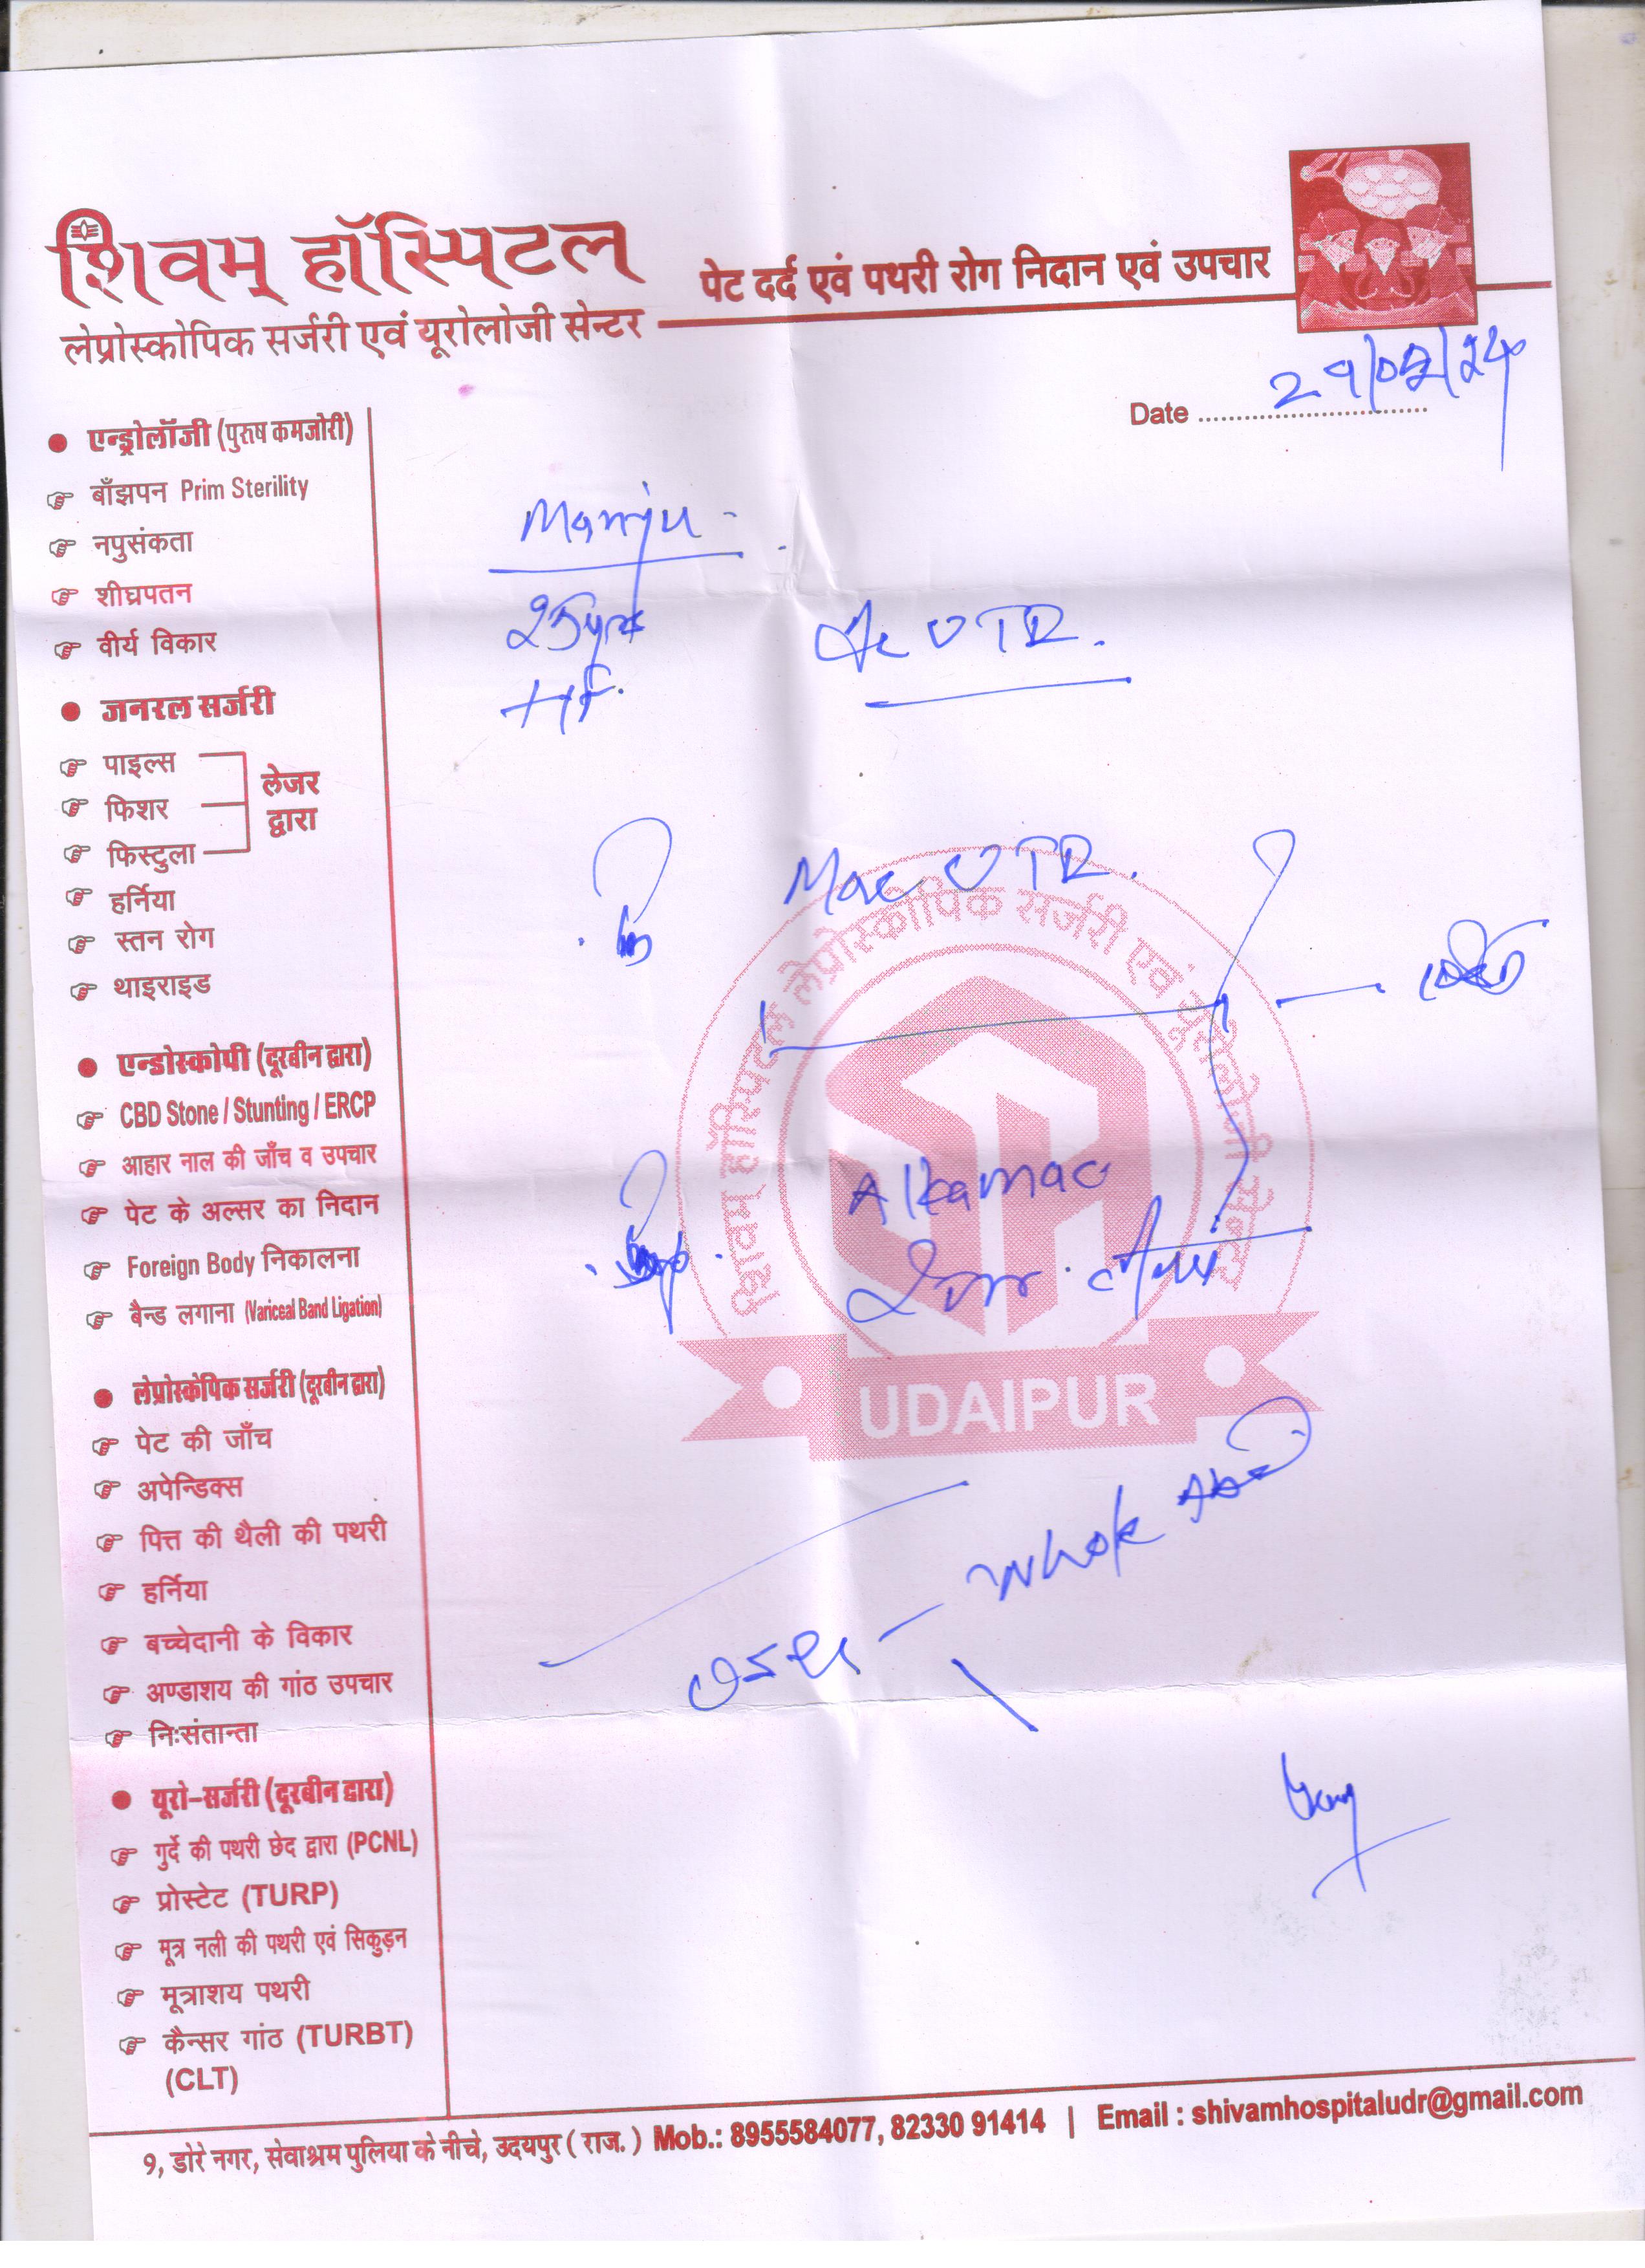 शिवम् हॉस्पिटल
लेप्रोस्कोपिक सर्जरी एवं यूरोलोजी सेन्टर
पेट दर्द एवं पथरी रोग निदान एवं उपचार
Date ..............................
एन्ड्रोलॉजी (पुरुष कमजोरी)
बाँझपन Prim Sterility
नपुसंकता
शीघ्रपतन
वीर्य विकार
जनरल सर्जरी
पाइल्स
फिशर
फिस्टुला
लेजर
द्वारा
हर्निया
स्तन रोग
थाइराइड
एन्डोस्कोपी (दूरबीन द्वारा)
CBD Stone / Stunting / ERCP
आहार नाल की जाँच व उपचार
पेट के अल्सर का निदान
Foreign Body निकालना
बैन्ड लगाना (Variceal Band Ligation)
लेप्रोस्केपिक सर्जरी (दूरबीन द्वारा)
पेट की जाँच
अपेन्डिक्स
पित्त की थैली की पथरी
हर्निया
बच्चेदानी के विकार
अण्डाशय की गांठ उपचार
निःसंतान्ता
यूरो-सर्जरी (दूरबीन द्वारा)
गुर्दे की पथरी छेद द्वारा (PCNL)
प्रोस्टेट (TURP)
मूत्र नली की पथरी एवं सिकुड़न
मूत्राशय पथरी
कैन्सर गांठ (TURBT)
(CLT)
Manju
UTR.
Mac UTR.
शिवम् हॉस्पिटल लेप्रोस्कोपिक सर्जरी एवं यूरोलोजी सेन्टर
Alkamac
UDAIPUR
Whole Abd
9, डोरे नगर, सेवाश्रम पुलिया के नीचे, उदयपुर ( राज. ) Mob.: 8955584077, 82330 91414 | Email : shivamhospitaludr@gmail.com